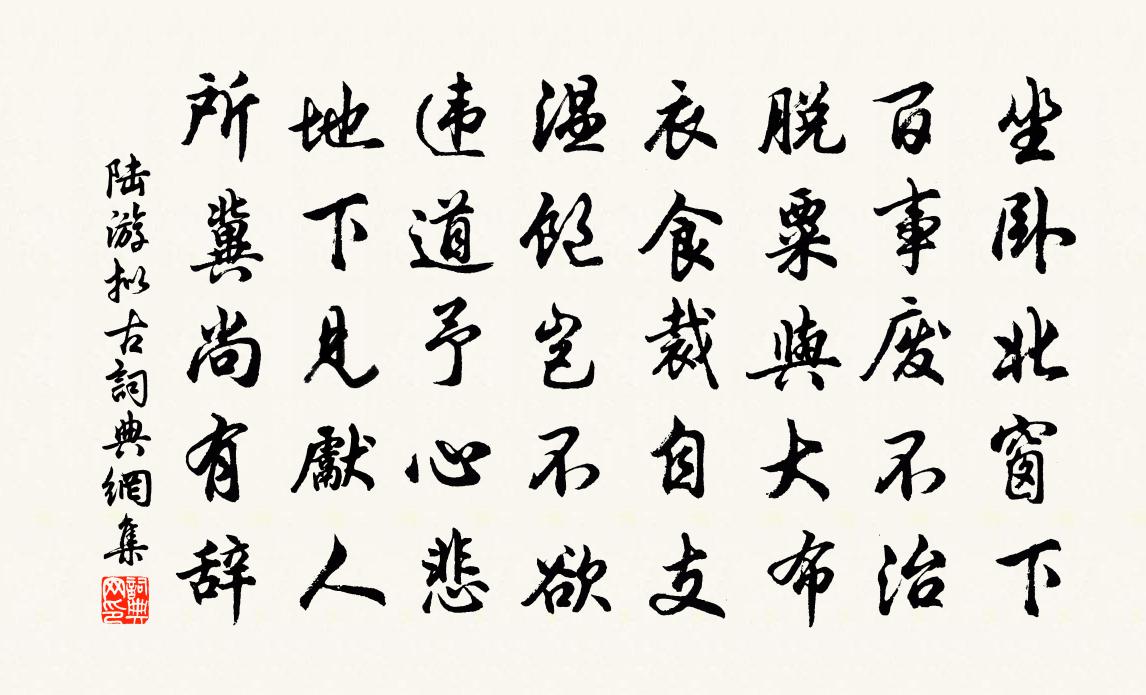 坐卧北窗下
百事废不治
脱粟與大布
衣食裁自支
温饱岂不欲
违道予心悲
地下見獻人
所冀尚有辞
陆游拟古詞典網集
詞典网印